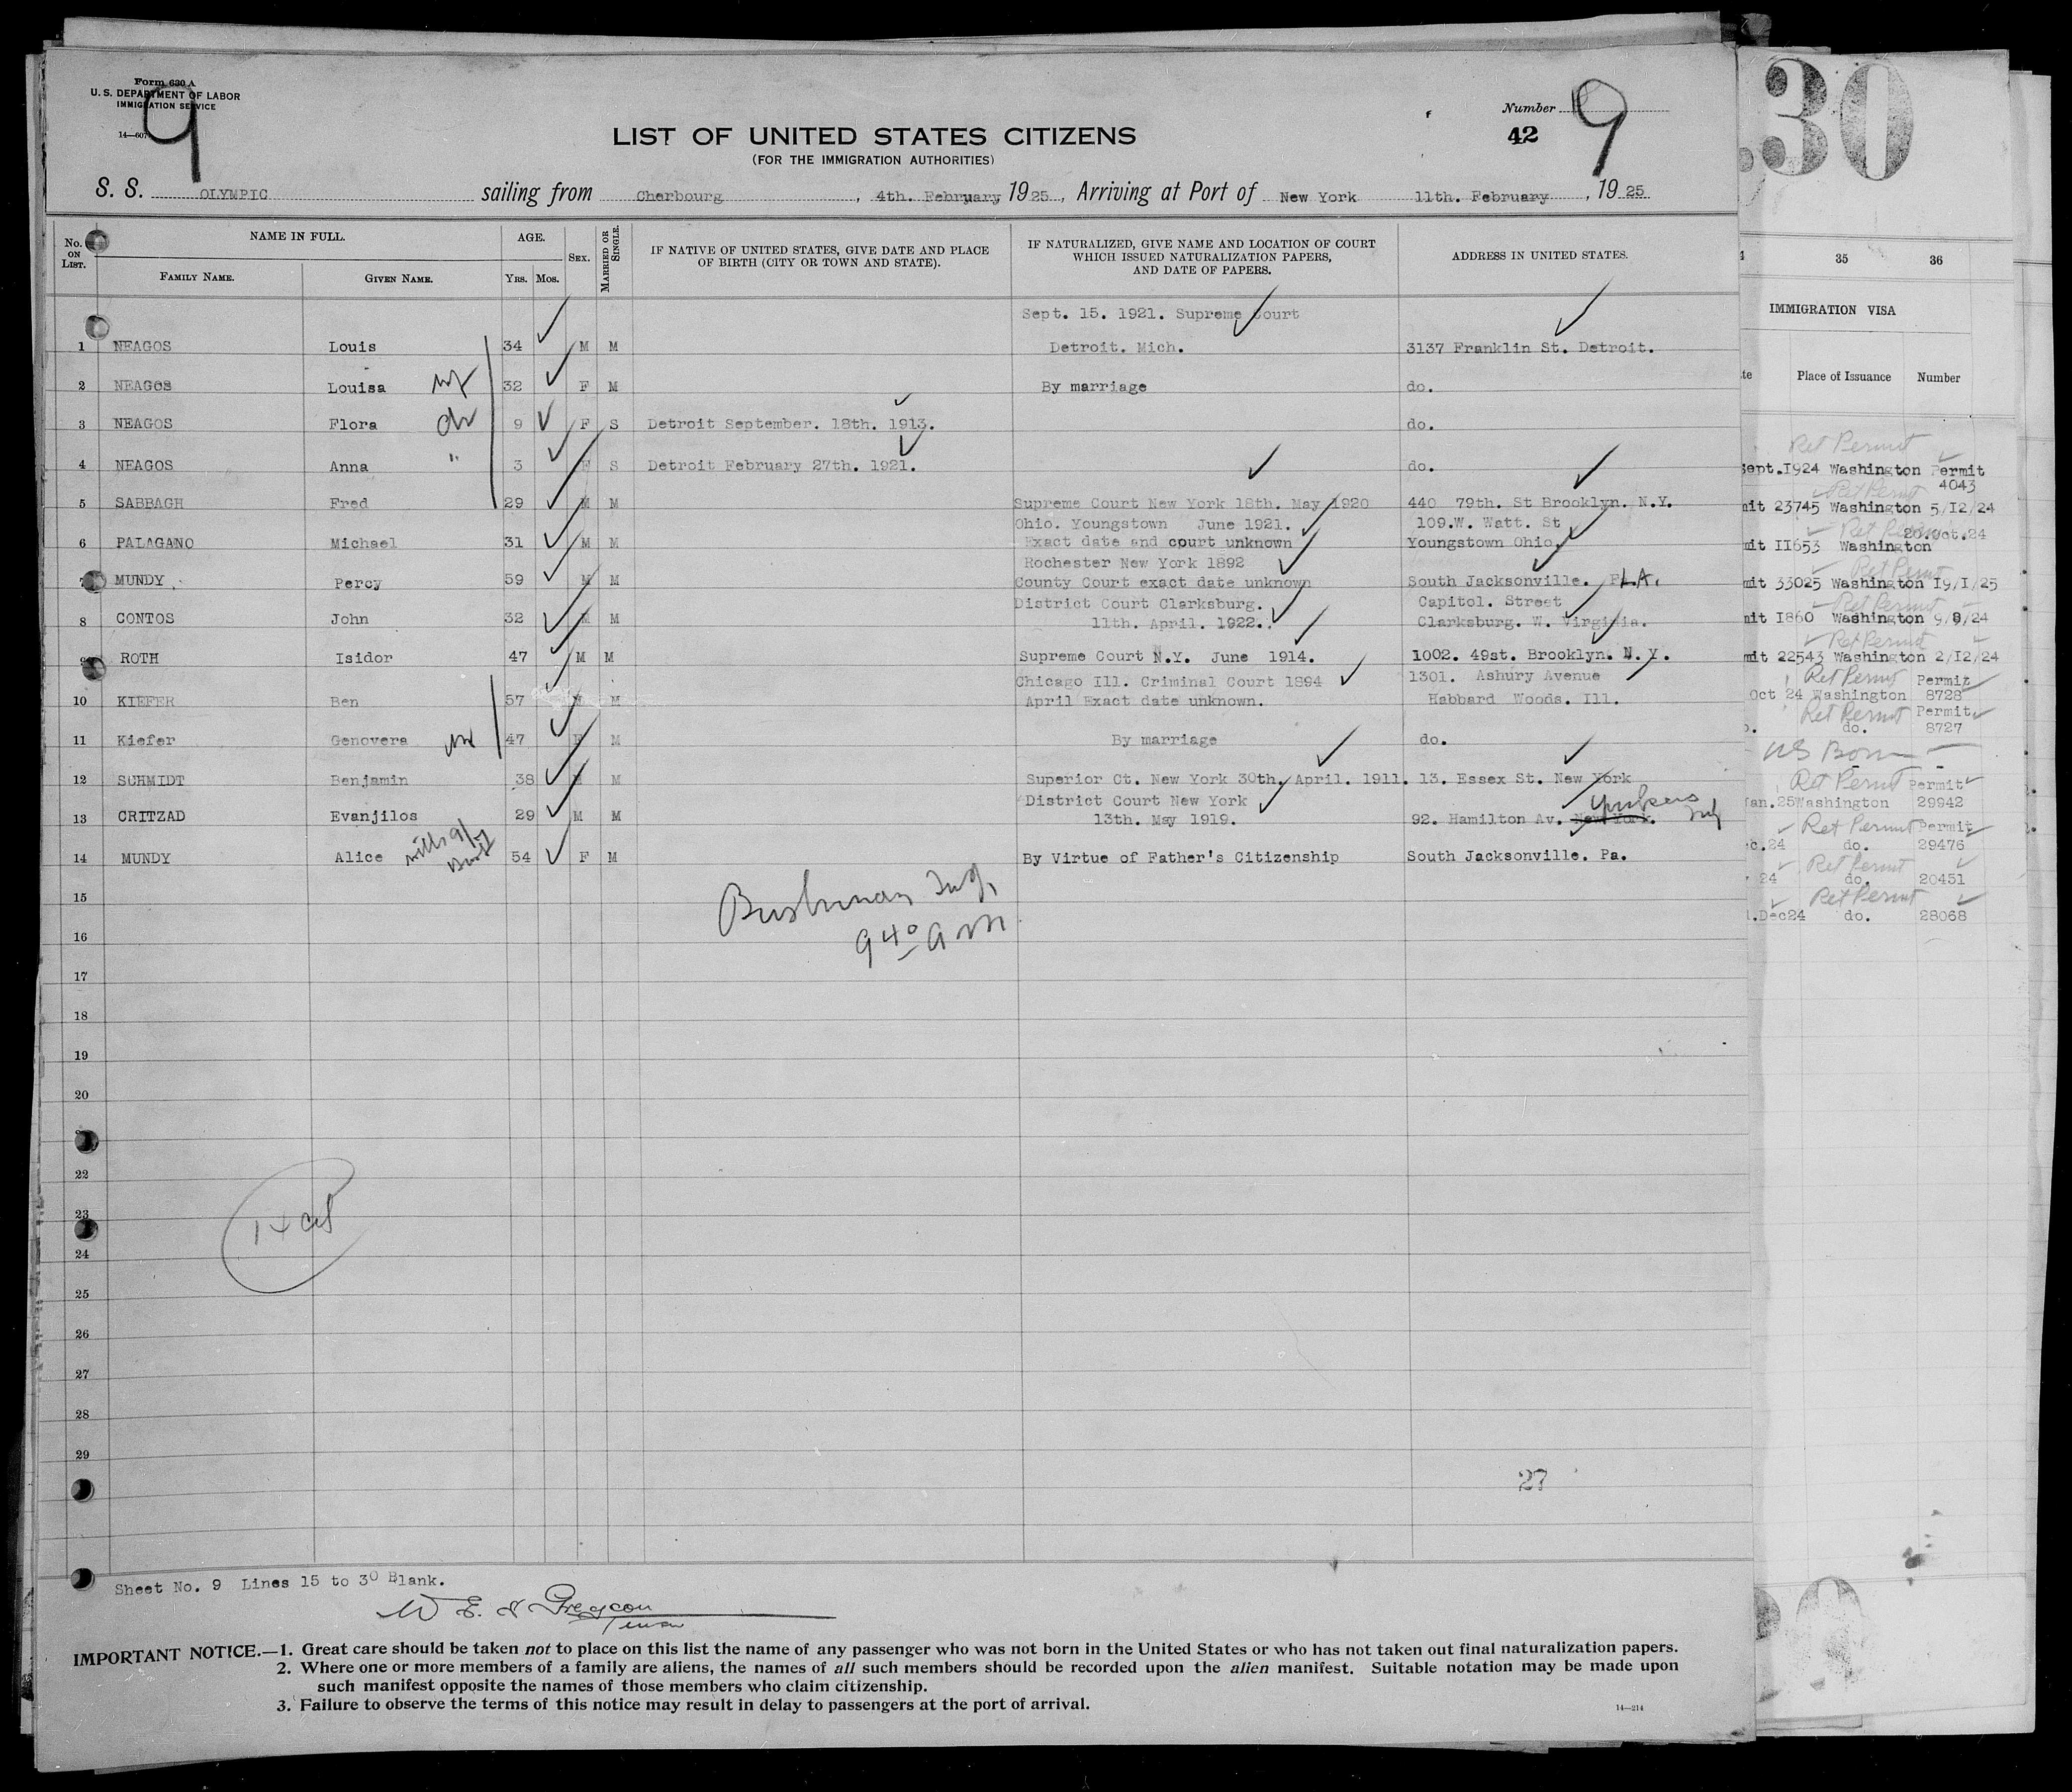 Form 630 A
U. S. DEPARTMENT OF LABOR
IMMIGRATION SERVICE
14—607
9
Number 9
42
LIST OF UNITED STATES CITIZENS
(FOR THE IMMIGRATION AUTHORITIES)
S. S. OLYMPIC sailing from Cherbourg, 4th. February 1925, Arriving at Port of New York 11th. February, 1925
No. ON LIST. NAME IN FULL. AGE. SEX. MARRIED OR SINGLE. IF NATIVE OF UNITED STATES, GIVE DATE AND PLACE OF BIRTH (CITY OR TOWN AND STATE). IF NATURALIZED, GIVE NAME AND LOCATION OF COURT WHICH ISSUED NATURALIZATION PAPERS, AND DATE OF PAPERS. ADDRESS IN UNITED STATES.
FAMILY NAME. GIVEN NAME. YRS. MOS.
Sept. 15. 1921. Supreme Court
1 NEAGOS Louis 34 M M Detroit. Mich. 3137 Franklin St. Detroit.
2 NEAGOS Louisa wf 32 F M By marriage do.
3 NEAGOS Flora 9 F S Detroit September. 18th. 1913. do.
4 NEAGOS Anna " 3 F S Detroit February 27th. 1921. do.
5 SABBAGH Fred 29 M M Supreme Court New York 18th. May 1920 440 79th. St Brooklyn. N.Y.
Ohio. Youngstown June 1921. 109.W. Watt. St
6 PALAGANO Michael 31 M M Exact date and court unknown Youngstown Ohio.
Rochester New York 1892
7 MUNDY Percy 59 M M County Court exact date unknown South Jacksonville. FLA.
District Court Clarksburg. Capitol. Street
8 CONTOS John 32 M M 11th. April. 1922. Clarksburg. W. Virginia.
9 ROTH Isidor 47 M M Supreme Court N.Y. June 1914. 1002. 49st. Brooklyn. N.Y.
Chicago Ill. Criminal Court 1894 1301. Ashury Avenue
10 KIEFER Ben 57 M M April Exact date unknown. Habbard Woods. Ill.
11 Kiefer Genovera 47 F M By marriage do.
12 SCHMIDT Benjamin 38 M M Superior Ct. New York 30th. April. 1911. 13. Essex St. New York
District Court New York Yonkers
13 CRITZAD Evanjilos 29 M M 13th. May 1919. 92. Hamilton Av. New York.
14 MUNDY Alice 54 F M By Virtue of Father's Citizenship South Jacksonville. Pa.
15
9 40 AM
16
17
18
19
20
22
23
24
25
26
27
28
29
27
Sheet No. 9 Lines 15 to 30 Blank.
IMPORTANT NOTICE.—1. Great care should be taken not to place on this list the name of any passenger who was not born in the United States or who has not taken out final naturalization papers.
2. Where one or more members of a family are aliens, the names of all such members should be recorded upon the alien manifest. Suitable notation may be made upon
such manifest opposite the names of those members who claim citizenship.
3. Failure to observe the terms of this notice may result in delay to passengers at the port of arrival.
14—214
30
35 36
IMMIGRATION VISA
Place of Issuance Number
Ret Permit
Sept.1924 Washington Permit
4043
Ret Permit
mit 23745 Washington 5/12/24
Ret Permit
20.Oct.24
mit II653 Washington
Ret Permit
mit 33025 Washington 19/1/25
Ret Permit
mit I860 Washington 9/8/24
Ret Permit
mit 22543 Washington 2/12/24
Ret Permit Permit
Oct 24 Washington 8728
Ret Permit Permit
do. 8727
US Born
Ret Permit Permit
Jan.25 Washington 29942
Ret Permit Permit
c.24 do. 29476
Ret Permit
24 do. 20451
Ret Permit
Dec24 do. 28068